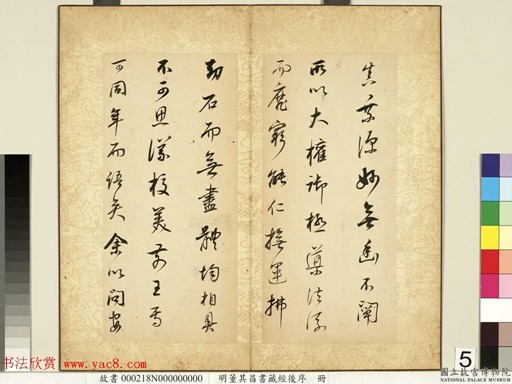 真乘源妙無幽不闡
所以大權御極導法流
而靡窮能仁撫運拂
劫石而無盡體均相具
不可思議校美前王焉
可同年而語矣余以問安
书法欣赏
www.yac8.com
故書 000218N000000000 明董其昌書藏經後序 冊
5
國立故宮博物院
NATIONAL PALACE MUSEUM